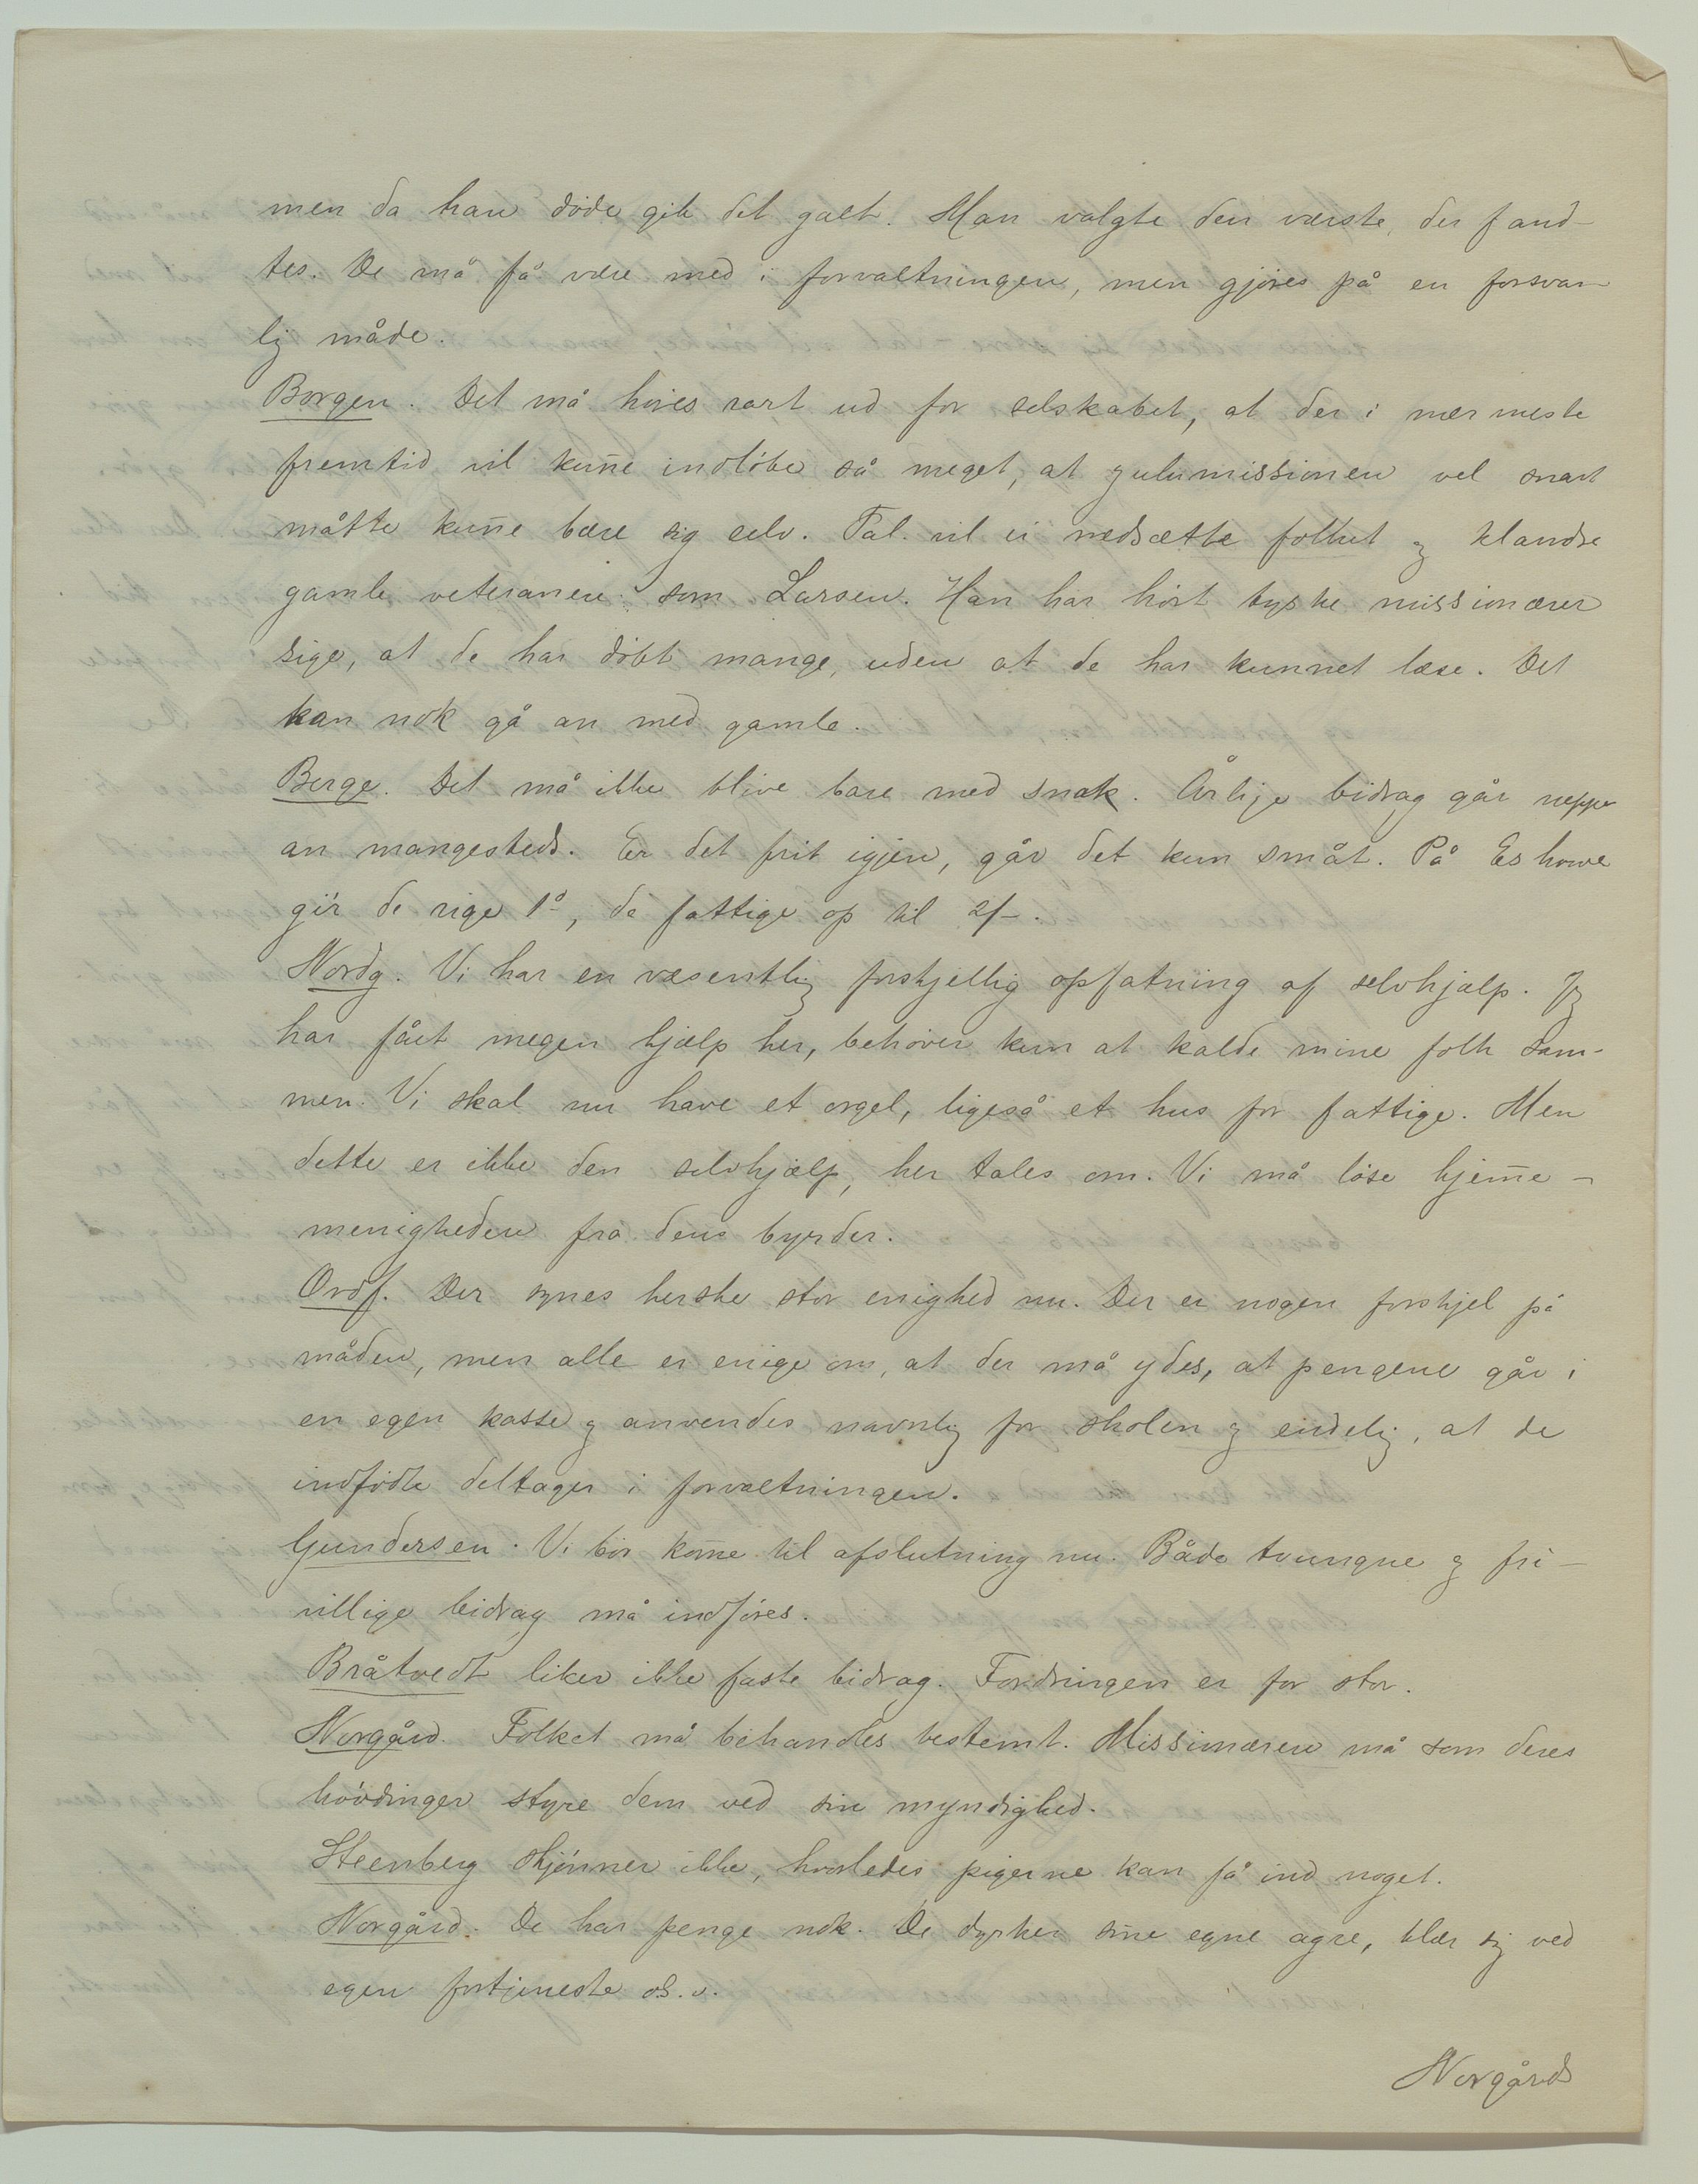 men da han døde gik det galt. Man valgte den værste, der fand-
tes. De må få være med i forvaltningen, men gjøres på en forsvar-
lig måde.
Borgen. Det må høres rart ud for selskabet, at der i nærmeste
fremtid vil kun̄e indløbe så meget, at zulumissionen vel snart
måtte kun̄e bære sig selv. Tal. vil ei nedsætte folket og klandre
gamle veteraner som Larsen. Han har hørt tyske missionærer
sige, at de har døbt mange, uden at de har kunnet læse. Det
kan nok gå an med gamle.
Berge. Det må ikke blive bare med snak. Årlige bidrag går neppe
an mangesteds. Er det frit igjen, går det kun småt. På Eshowe
gi'r de rige 1£, de fattige op til 2/-.
Nordg. Vi har en væsentlig forskjellig opfatning af selvhjælp. Jeg
har fået megen hjælp her, behøver kun at kalde mine folk sam-
men. Vi skal nu have et orgel, ligeså et hus for fattige. Men
dette er ikke den selvhjælp, her tales om. Vi må løse hjem̄e-
menigheden fra dens byrder.
Ordf. Der synes herske stor enighed nu. Der er nogen forskjel på
måden, men alle er enige om, at der må ydes, at pengene går i
en egen kasse og anvendes navnlig for skolen og endelig, at de
indfødte deltager i forvaltningen.
Gundersen. Vi bør kom̄e til afslutning nu. Både tvungne og fri-
villige bidrag må indføres.
Bråtvedt liker ikke faste bidrag. Fordringen er for stor.
Norgård. Folket må behandles bestemt. Missionæren må som deres
høvdinger styre dem ved sin myndighed.
Steenberg skjønner ikke, hvorledes pigerne kan få ind noget.
Norgård. De har penge nok. De dyrker sine egne agre, klær sig ved
egen fortjeneste o.s.v.
Norgård